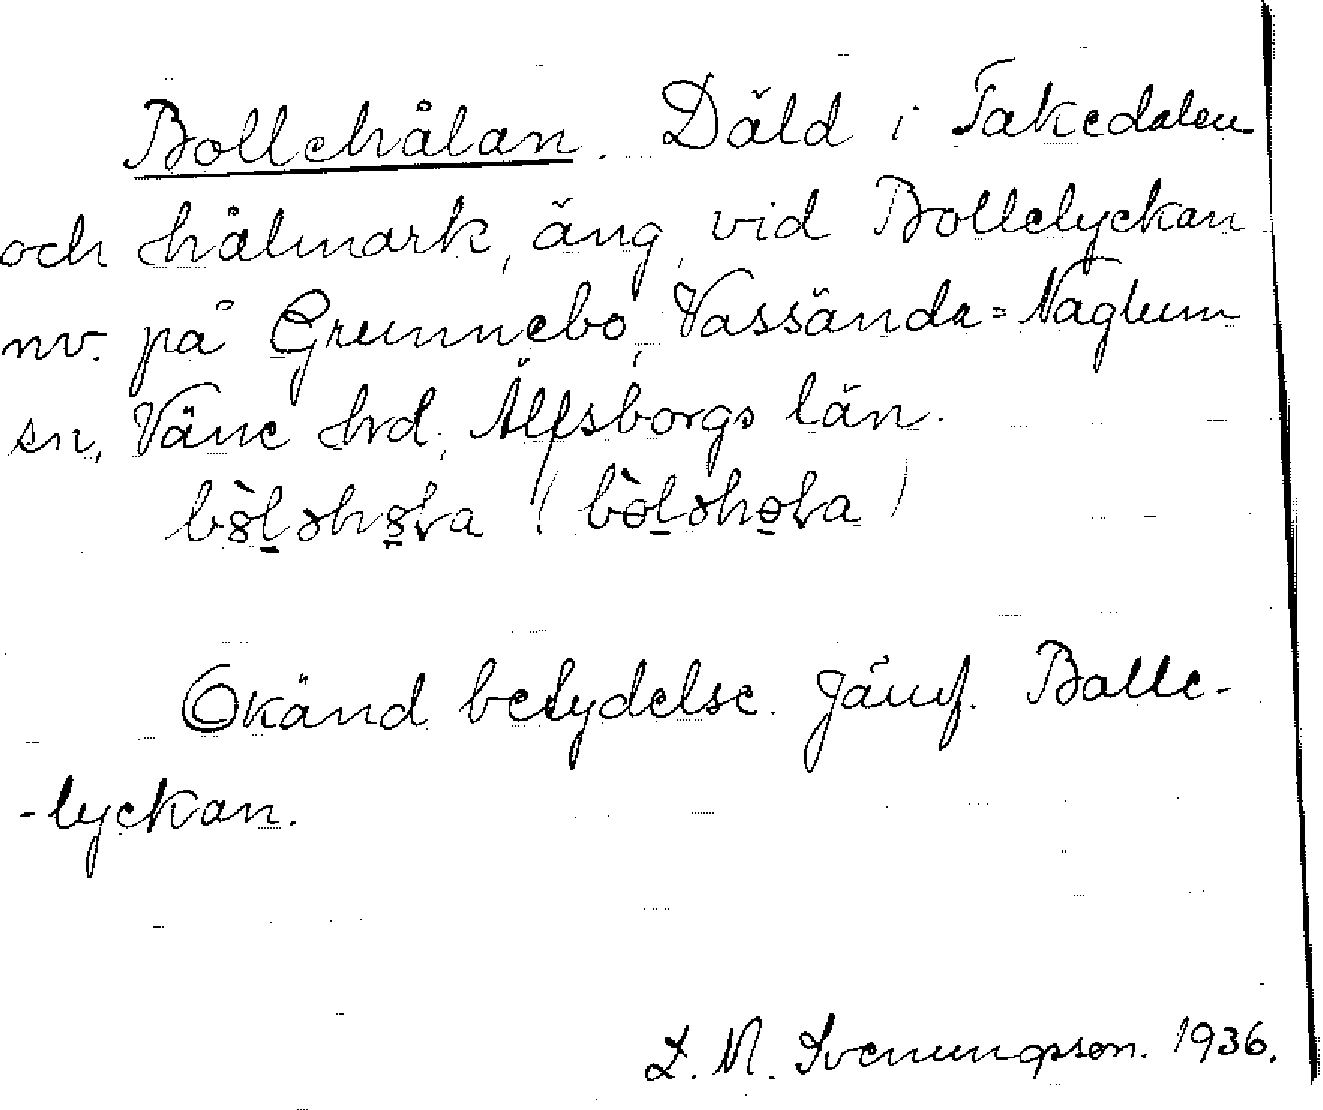 Bollehålan. Däld i Takedalen
och hålmark, äng, vid Bollelyckan
nv. på Grunnebo, Vassända=Naglum
sn, Väne hrd, Älfsborgs län.
Okänd betydelse. Jämf. Bolle-
-lyckan.
L. M. Svenungsson. 1936.